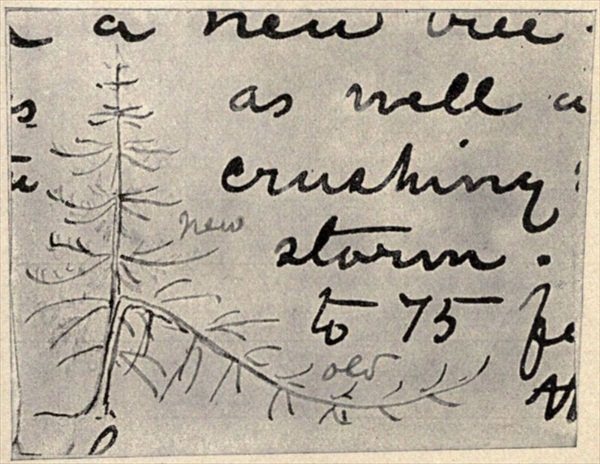 a new tree
as well a
crushing
new
storm.
to 75 fe
old